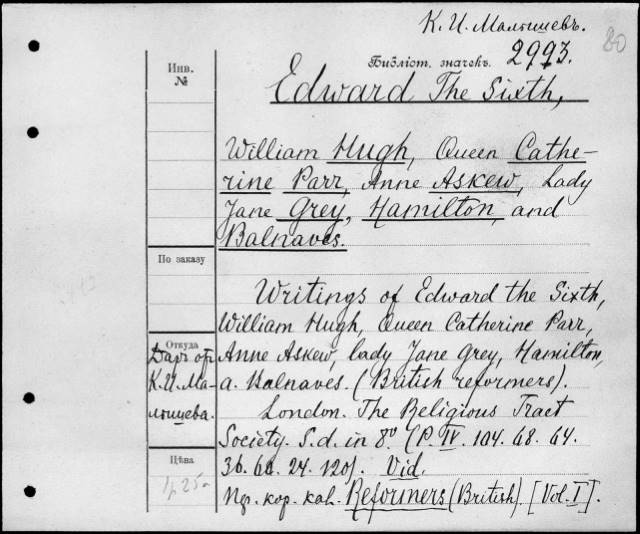 К. И. Малышевъ.
80
Библіот. значекъ. 2993.
Инв.
№
Edward The Sixth,
William Hugh, Queen Cathe-
rine Parr, Anne Askew, Lady
Jane Grey, Hamilton, and
Balnaves.
По заказу
Writings of Edward the Sixth,
William Hugh, Queen Catherine Parr,
Откуда
Даръ от
К. И. Ма-
лышева.
Anne Askew, lady Jane Grey, Hamilton,
a. Balnaves. (British reformers).
London. The Religious Tract
Society. S.d. in 8° (P. IV. 104. 68. 64.
Цѣна
1р 25
36. 60. 24. 120). Vid.
кор. Reformers (British). [Vol. I].